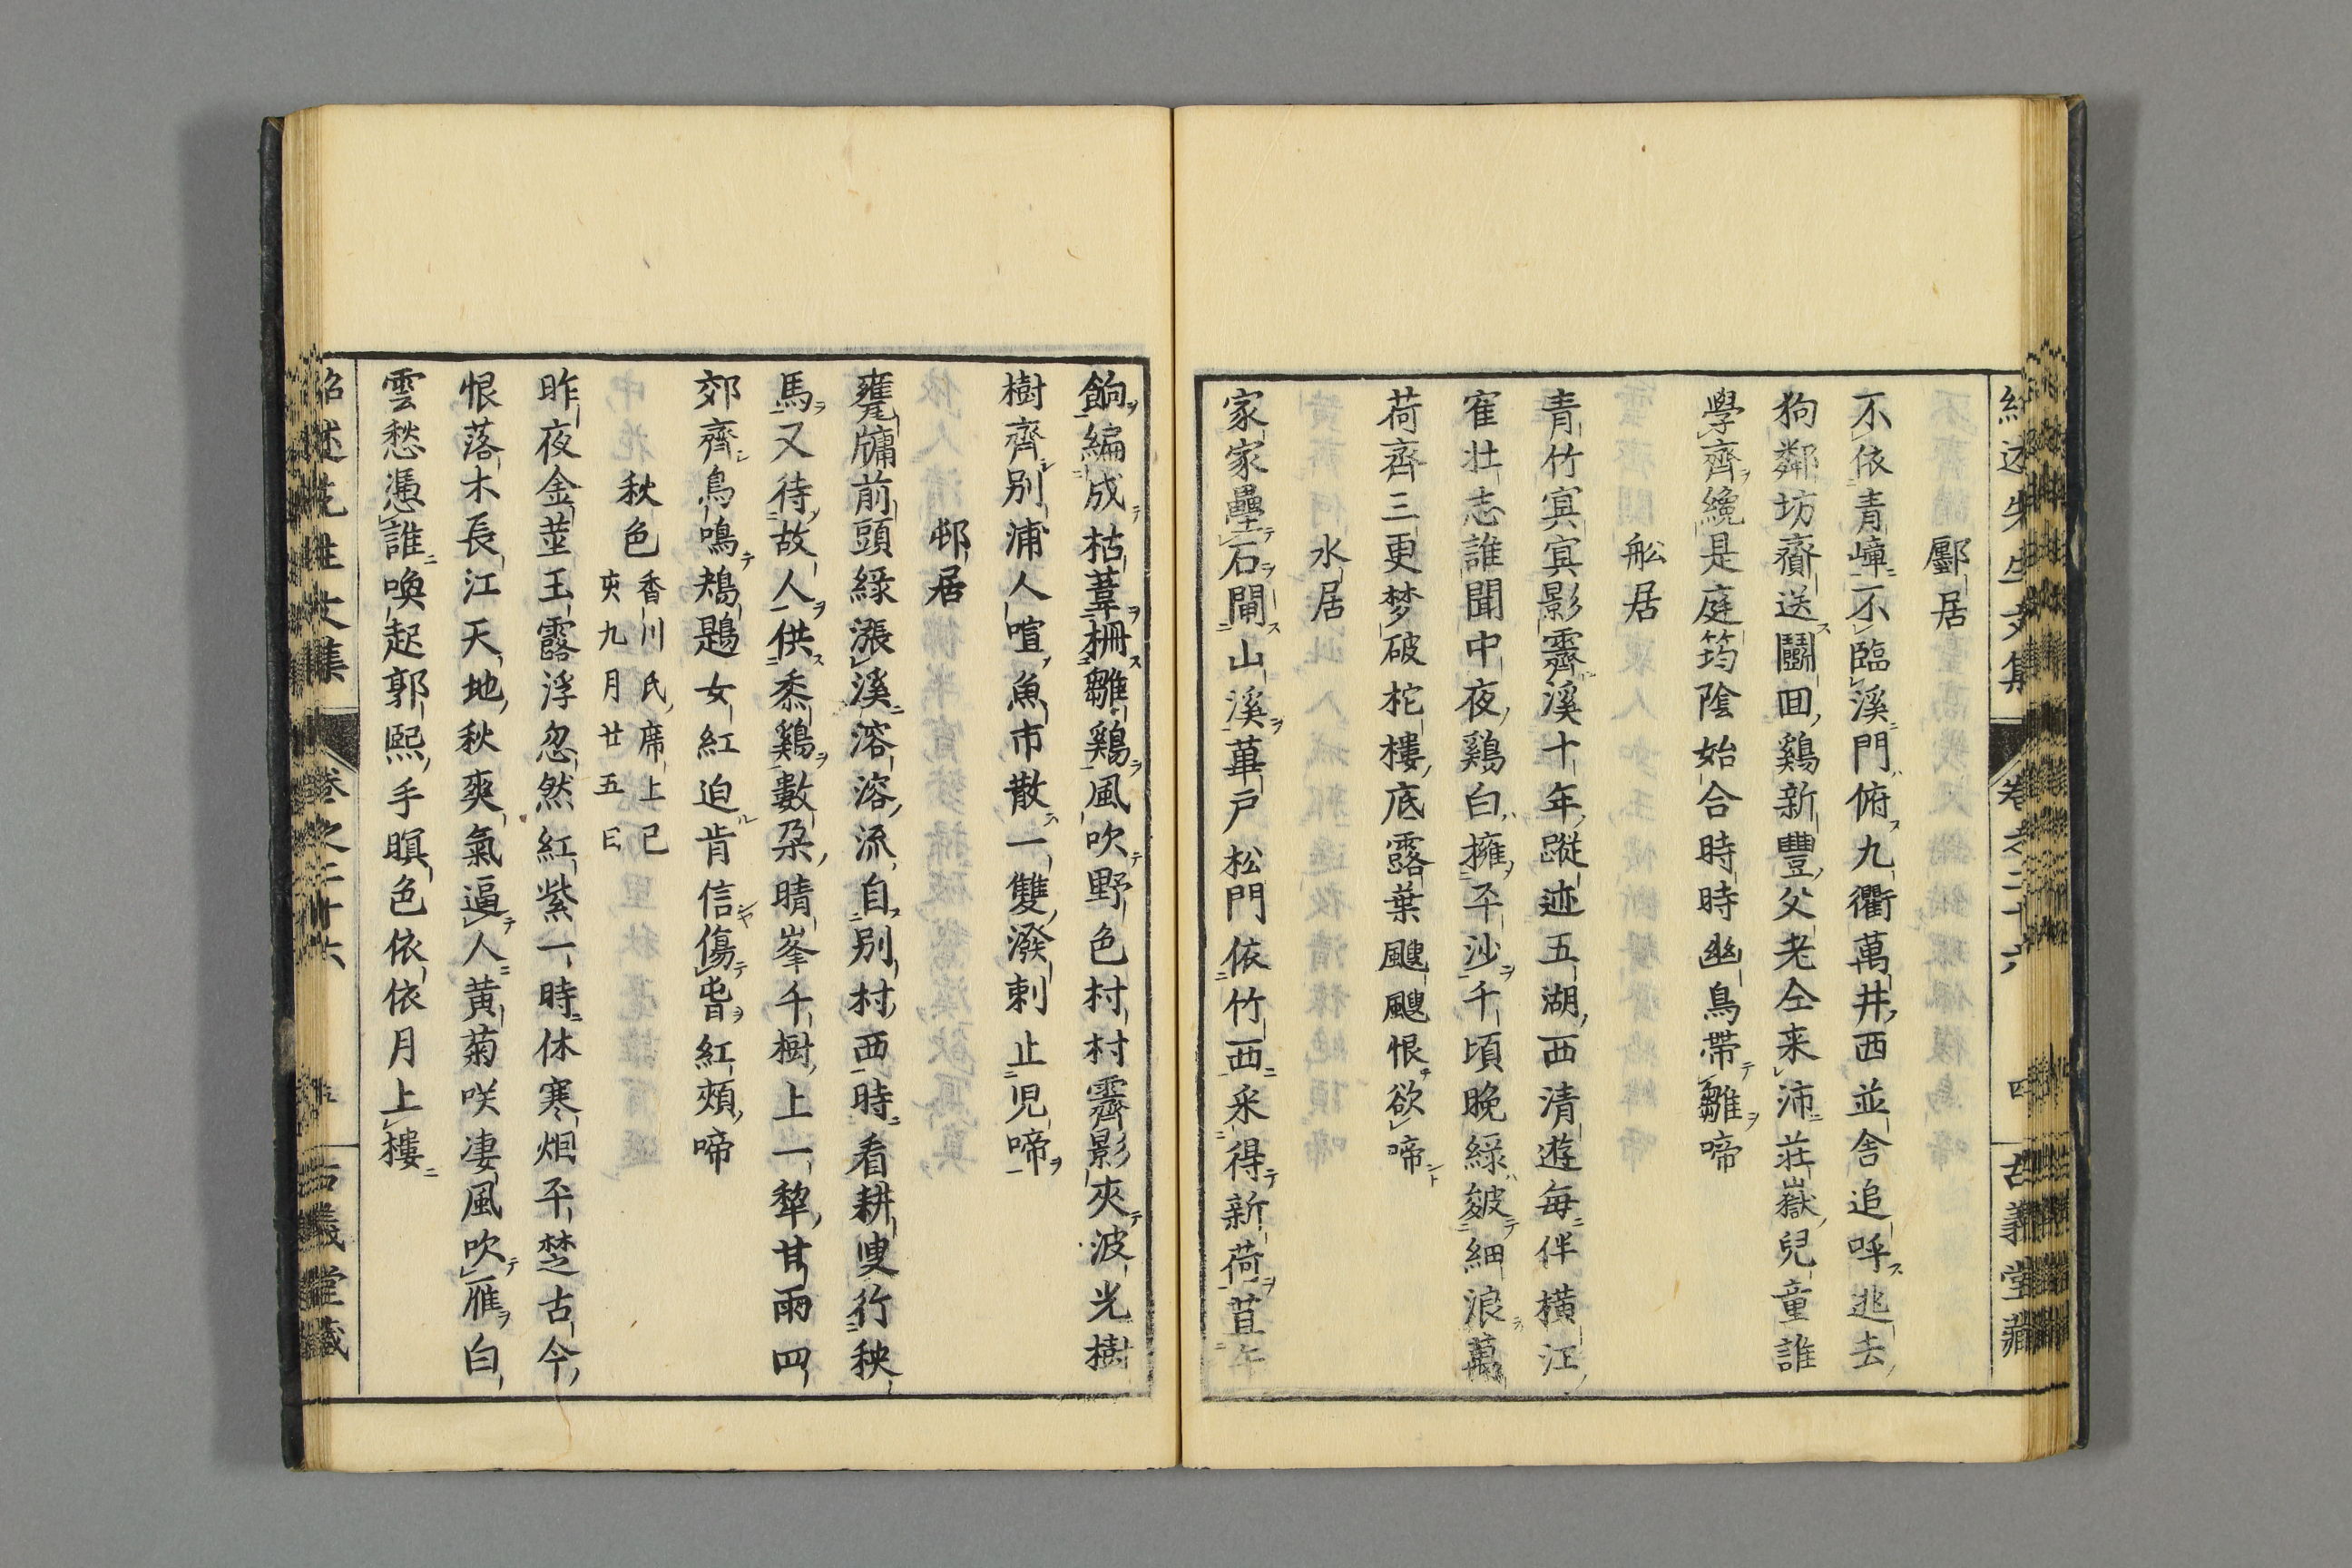 紹述先生文集 卷之二十六 四 古義堂藏
鄽居
不依青嶂不臨溪門俯九衢萬井西並舎追呼逃去
狗鄰坊齎送鬭回鷄新豐父老仝来沛荘嶽兒童誰
學齊纔是庭筠陰始合時時幽鳥帶雛啼
舩居
青竹冥冥影霽溪十年蹤迹五湖西清遊毎伴横江
寉壮志誰聞中夜鷄白擁平沙千頃晩緑皴細浪萬
荷齊三更梦破柁樓底露葉颼颼恨欲啼
水居
家家壘石閘山溪蓽戸松門依竹西采得新荷苴午
餉編成枯葦柵雛鷄風吹野色村村霽影夾波光樹
樹齊別浦人喧魚市散一雙潑剌止児啼
邨居
甕牖前頭緑漲溪溶溶流自別村西時看耕叟行秧
馬又待故人供黍鷄數朶晴峯千樹上一犂甘雨四
郊齊鳥鳴鴂鶗女紅迫肯信傷春紅頰啼
秋色 香川氏席上己
亥九月廿五日
昨夜金莖玉露浮忽然紅紫一時休寒烟平楚古今
恨落木長江天地秋爽氣逼人黄菊咲凄風吹雁白
雲愁憑誰喚起郭熙手暝色依依月上樓
紹述先生文集 卷之二十六 五 古義堂藏